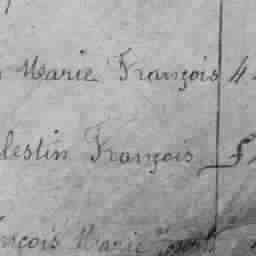 Marie François 4
lestin François
nçois Marie